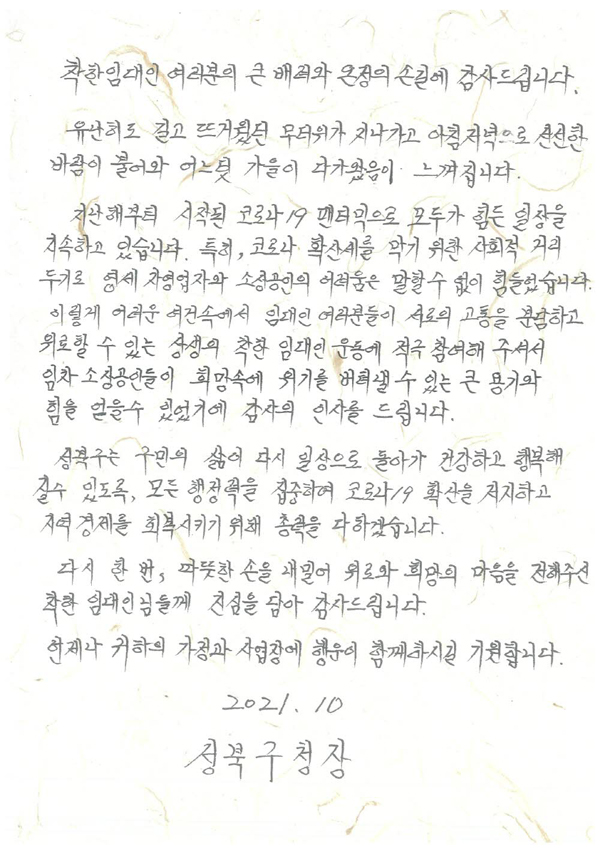 착한임대인 여러분의 큰 배려와 온정의 손길에 감사드립니다.
유난히도 길고 뜨거웠던 무더위가 지나가고 아침저녁으로 선선한
바람이 불어와 어느덧 가을이 다가왔음이 느껴집니다.
지난해부터 시작된 코로나19 팬터믹으로 모두가 힘든 일상을
지속하고 있습니다. 특히, 코로나 확산세를 막기 위한 사회적 거리
두기로 영세 자영업자와 소상공인의 어려움은 말할 수 없이 힘들었습니다.
이렇게 어려운 여건속에서 임대인 여러분들이 서로의 고통을 분담하고
위로할 수 있는 상생의 착한 임대인 운동에 적극 참여해 주셔서
임차 소상공인들이 희망속에 위기를 버텨낼 수 있는 큰 용기와
힘을 얻을수 있었기에 감사의 인사를 드립니다.
성북구는 구민의 삶이 다시 일상으로 돌아가 건강하고 행복해
질수 있도록, 모든 행정력을 집중하여 코로나19 확산을 저지하고
지역경제를 회복시키기 위해 총력을 다하겠습니다.
다시 한 번, 따뜻한 손을 내밀어 위로와 희망의 마음을 전해주신
착한 임대인님들께 진심을 담아 감사드립니다.
언제나 귀하의 가정과 사업장에 행운이 함께하시길 기원합니다.
2021. 10
성북구청장